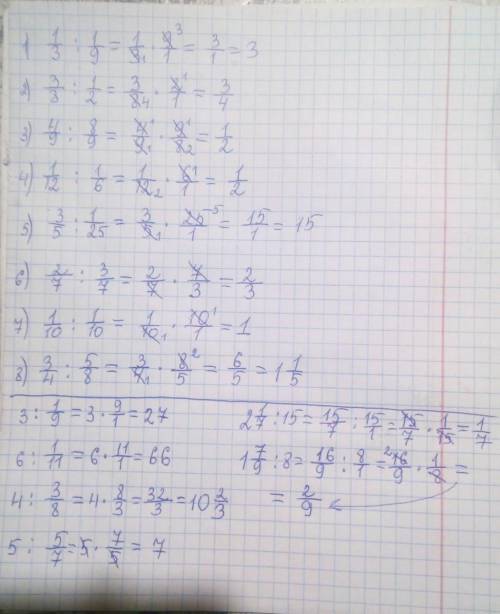 1 1/3 : 1/9 = 1/3₁ · 9³/1 = 3/1 = 3
2) 3/8 : 1/2 = 3/8₄ · 2¹/1 = 3/4
3) 4/9 : 8/9 = 4¹/9₁ · 9¹/8₂ = 1/2
4) 1/12 : 1/6 = 1/12₂ · 6¹/1 = 1/2
5) 3/5 : 1/25 = 3/5₁ · 25⁵/1 = 15/1 = 15
6) 2/7 : 3/7 = 2/7 · 7/3 = 2/3
7) 1/10 : 1/10 = 1/10₁ · 10¹/1 = 1
8) 3/4 : 5/8 = 3/4₁ · 8²/5 = 6/5 = 1 1/5
3 : 1/9 = 3 · 9/1 = 27
6 : 1/11 = 6 · 11/1 = 66
4 : 3/8 = 4 · 8/3 = 32/3 = 10 2/3
5 : 5/7 = 5 · 7/5 = 7
2 1/7 : 15 = 15/7 : 15/1 = 15/7 · 1/15 = 1/7
1 7/9 : 8 = 16/9 : 8/1 = ²16/9 · 1/8 =
= 2/9